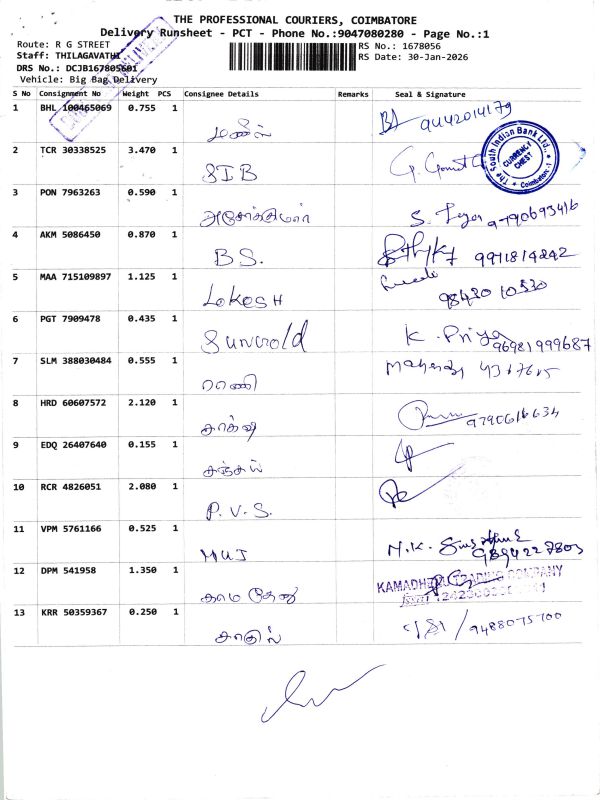 THE PROFESSIONAL COURIERS, COIMBATORE
Delivery Runsheet - PCT - Phone No.:9047080280 - Page No.:1
Route: R G STREET
RS No.: 1678056
Staff: THILAGAVATHI
RS Date: 30-Jan-2026
DRS No.: DCJB167805601
Vehicle: Big Bag Delivery
S No Consignment No Weight PCS Consignee Details Remarks Seal & Signature
1 BHL 100465069 0.755 1
மணிஸ் 9442014179
2 TCR 30338525 3.470 1
SIB
The South Indian Bank Ltd., CURRENCY CHEST Coimbatore-1
3 PON 7963263 0.590 1
அசோக்குமார் 9790693416
4 AKM 5086450 0.870 1
B S. 9971814242
5 MAA 715109897 1.125 1
Lokesh 98430 10530
6 PGT 7909478 0.435 1
Sunworld K. Priya 96981999687
7 SLM 388030484 0.555 1
ராணி
8 HRD 60607572 2.120 1
சாக்ஷி 9790616634
9 EDQ 26407640 0.155 1
சஞ்சய்
10 RCR 4826051 2.080 1
P. V. S.
11 VPM 5761166 0.525 1
MUJ 9894227803
12 DPM 541958 1.350 1
காம தேனு KAMADHENU TRADING COMPANY
13 KRR 50359367 0.250 1
9488075700